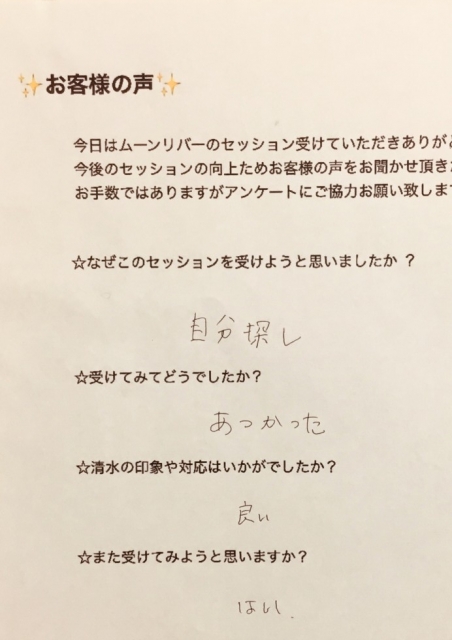 ✨お客様の声✨
今日はムーンリバーのセッション受けていただきありがと
今後のセッションの向上ためお客様の声をお聞かせ頂きた
お手数ではありますがアンケートにご協力お願い致します
☆なぜこのセッションを受けようと思いましたか ？
自分探し
☆受けてみてどうでしたか？
あっかった
☆清水の印象や対応はいかがでしたか？
良い
☆また受けてみようと思いますか？
はい.